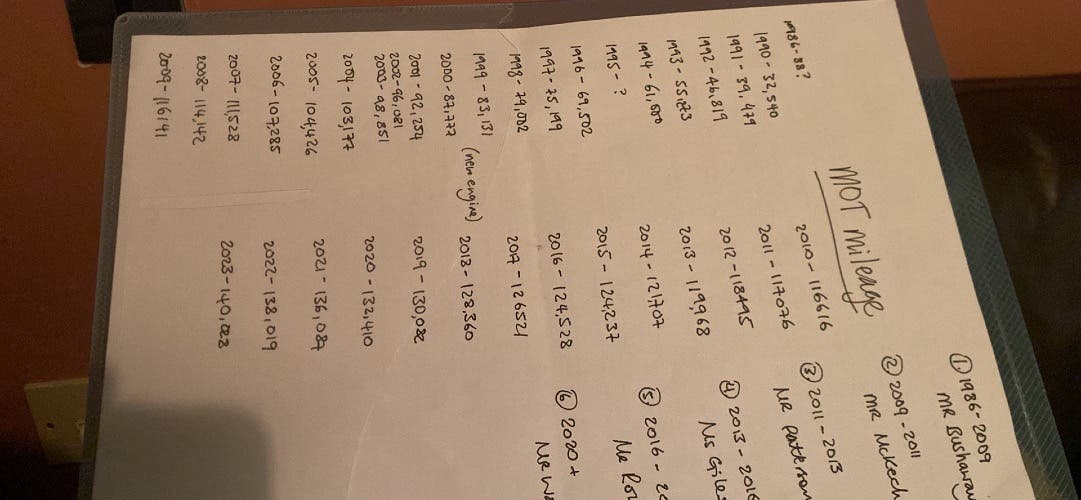 MOT Mileage
1986-88?
1990 - 32,540
1991 - 39,479
1992 - 46,819
1993 -
1994 -
1995 - ?
1996 - 69,502
1997 - 75,199
1998 - 79,002
1999 - 83,131 (new engine)
2000 - 87,777
2001 - 92,254
2002 - 96,081
2003 - 98,851
2004 - 103,177
2005 - 104,426
2006 - 107,285
2007 - 111,528
2008 - 114,142
2009 - 116141
2010 - 116616
2011 - 117076
2012 - 118495
2013 - 119,968
2014 - 121,707
2015 - 124,237
2016 - 124,528
2017 - 126521
2018 - 128,360
2019 - 130,082
2020 - 132,410
2021 - 136,087
2022 - 138,019
2023 - 140,023
① 1986-2009
Mr Bushaway
② 2009-2011
Mr McKech
③ 2011-2013
Mr
④ 2013-2016
Ms Giles
⑤ 2016 -
Mr
⑥ 2020 +
Mr